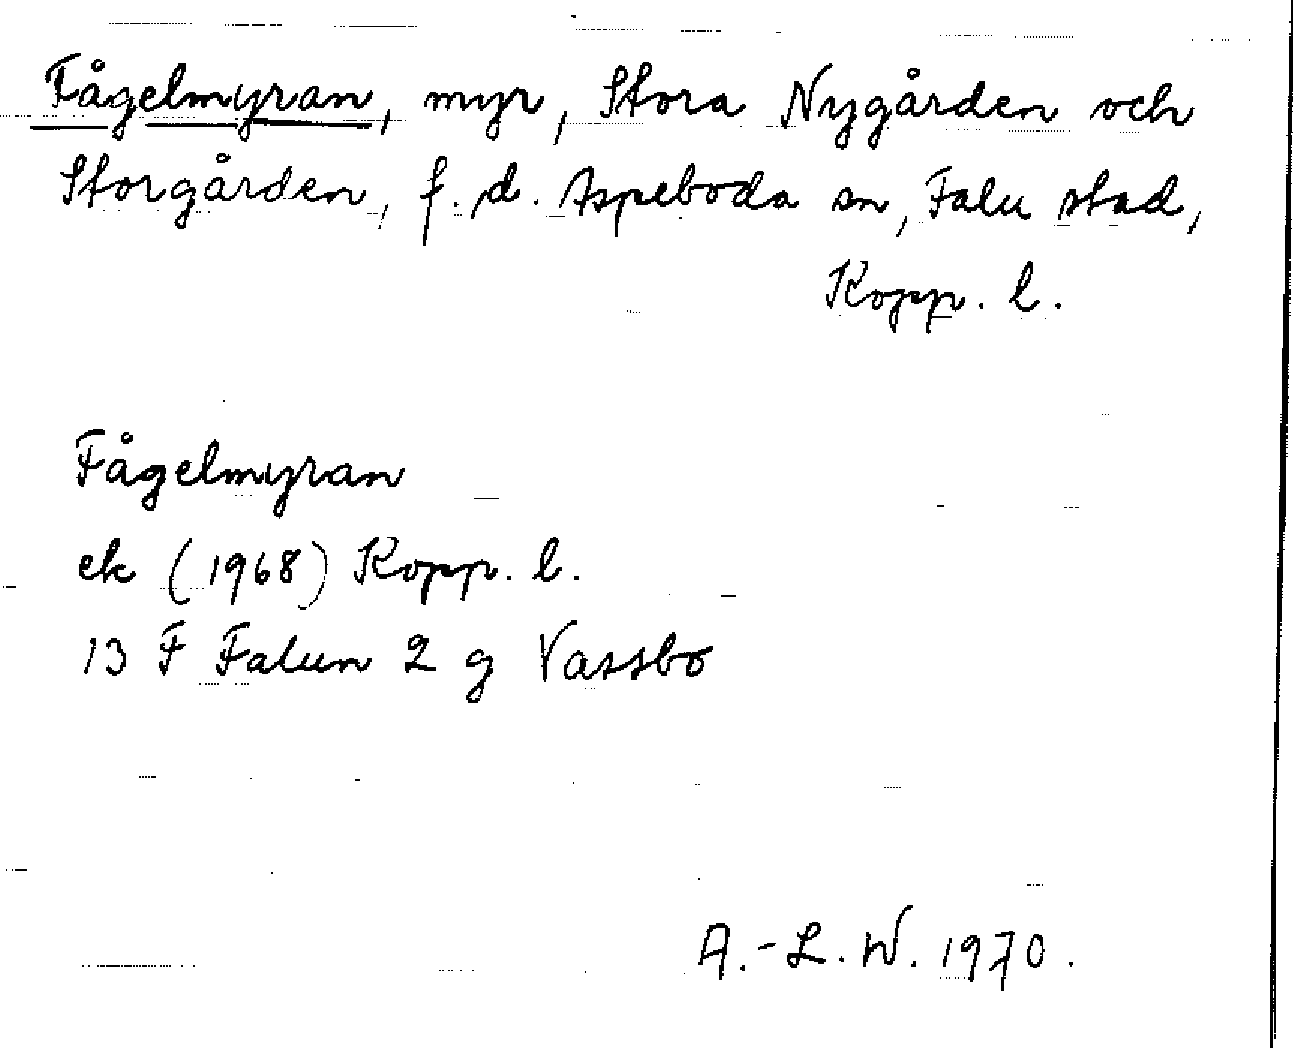 Fågelmyran, myr, Stora Nygården och
Storgården, f. d. Aspeboda sn, Falu stad,
Kopp. l.
Fågelmyran
ek (1968) Kopp. l.
13 F Falun 2 g Vassbo
A.-L. W. 1970.